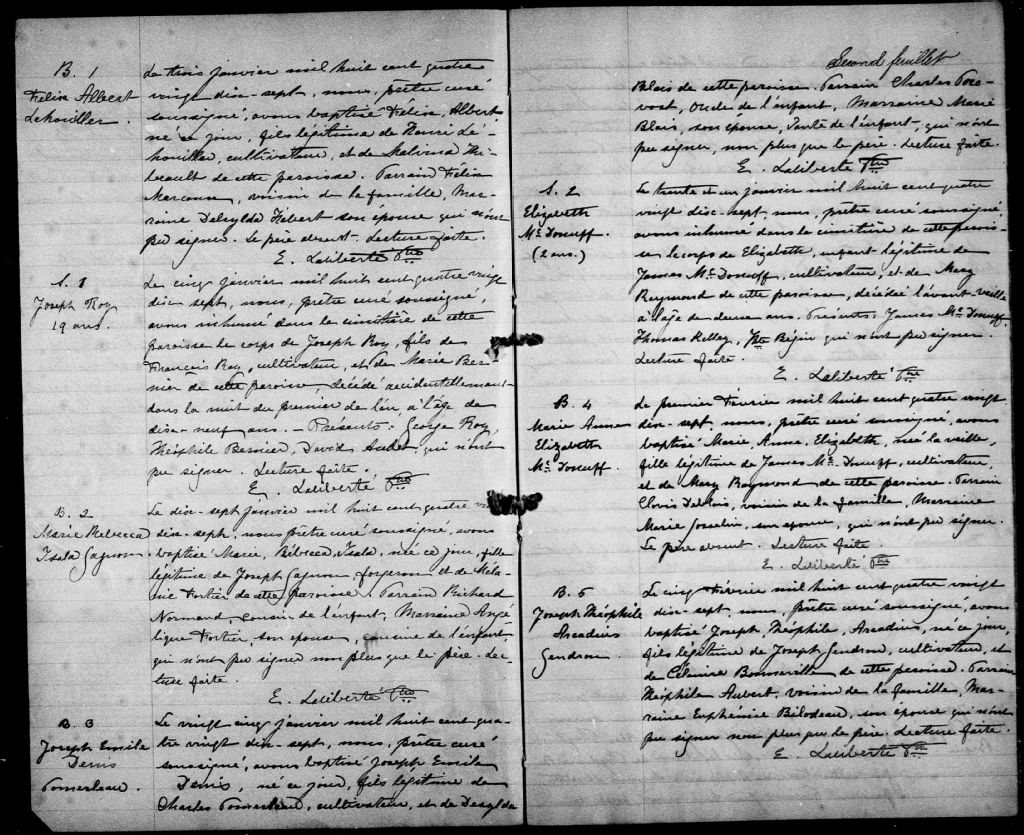 B. 1
Félix Albert
Lehouiller.
Le trois janvier mil huit cent quatre
vingt dix-sept, nous, prêtre curé
soussigné, avons baptisé Félix, Albert
né ce jour, fils légitime de Henri Le-
houiller, cultivateur, et de Malvina Thi-
beault de cette paroisse. Parrain Félix
Marcoux, voisin de la famille, Mar-
raine Delsylda Hébert son épouse qui n'ont
pu signer. Le père absent. Lecture faite.
E. Laliberté Ptre
S. 1
Joseph Roy
19 ans.
Le cinq janvier mil huit cent quatre vingt
dix-sept, nous, prêtre curé soussigné,
avons inhumé dans le cimetière de cette
paroisse le corps de Joseph Roy, fils de
François Roy, cultivateur, et de Marie Ber-
nier de cette paroisse, décédé accidentellement
dans la nuit du premier de l'an, à l'âge de
dix-neuf ans. - Présents: George Roy,
Théophile Bernier, David Audet qui n'ont
pu signer. Lecture faite.
E. Laliberté Ptre
B. 2
Marie Rebecca
Isala Gagnon.
Le dix-sept janvier mil huit cent quatre
dix-sept, nous prêtre curé soussigné, avons
baptisé Marie, Rébecca, Isala, née ce jour, fille
légitime de Joseph Gagnon forgeron et de Méla-
nie Fortier de cette paroisse. Parrain Richard
Normand, cousin de l'enfant, Marraine Angé-
lique Fortier, son épouse, cousine de l'enfant
qui n'ont pu signer non plus que le père. Lec-
ture faite.
E. Laliberté Ptre
B. 3
Joseph Emile
Denis
Pomerleau.
Le vingt cinq janvier mil huit cent qua-
tre vingt dix-sept, nous, prêtre curé
soussigné, avons baptisé Joseph Emile
Denis, né ce jour, fils légitime de
Charles Pomerleau, cultivateur, et de Desylda
Second feuillet
Blais de cette paroisse. Parrain Charles Pou-
vost, oncle de l'enfant, Marraine Marie
Blais, son épouse, Tante de l'enfant, qui n'ont
pu signer, non plus que le père. Lecture faite.
E. Laliberté Ptre
S. 2
Elizabeth
(2 ans.)
Le trente et un janvier mil huit cent quatre
vingt dix-sept, nous, prêtre curé soussigné,
avons inhumé dans le cimetière de cette parois-
se le corps de Elizabeth, enfant légitime de
James Mc Donuff, cultivateur, et de Mary
Raymond de cette paroisse, décédée l'avant-veille
à l'âge de deux ans. Présents: James Mc Donuff,
Thomas Kelley, Jbte Bégin qui n'ont pu signer.
Lecture faite.
E. Laliberté Ptre
B. 4
Marie Anne
Elizabeth
Mc Donuff.
Le premier Février mil huit cent quatre vingt
dix-sept, nous, prêtre curé soussigné, avons
baptisé Marie, Anne, Elizabeth, née la veille,
fille légitime de James Mc Donuff, cultivateur,
et de Mary Raymond de cette paroisse. Parrain
Clovis Deblois, voisin de la famille, Marraine
Marie Josselin, son épouse, qui n'ont pu signer.
Le père absent. Lecture faite.
E. Laliberté Ptre
B. 5
Joseph Théophile
Arcadius
Gendron.
Le cinq Février mil huit cent quatre vingt
dix-sept, nous, prêtre curé soussigné, avons
baptisé Joseph, Théophile, Arcadius, né ce jour,
fils légitime de Joseph Gendron, cultivateur, et
de Célanire Bonneville de cette paroisse. Parrain
Théophile Aubert, voisin de la famille, Mar-
raine Euphémie Bilodeau, son épouse qui n'ont
pu signer non plus que le père. Lecture faite.
E. Laliberté Ptre